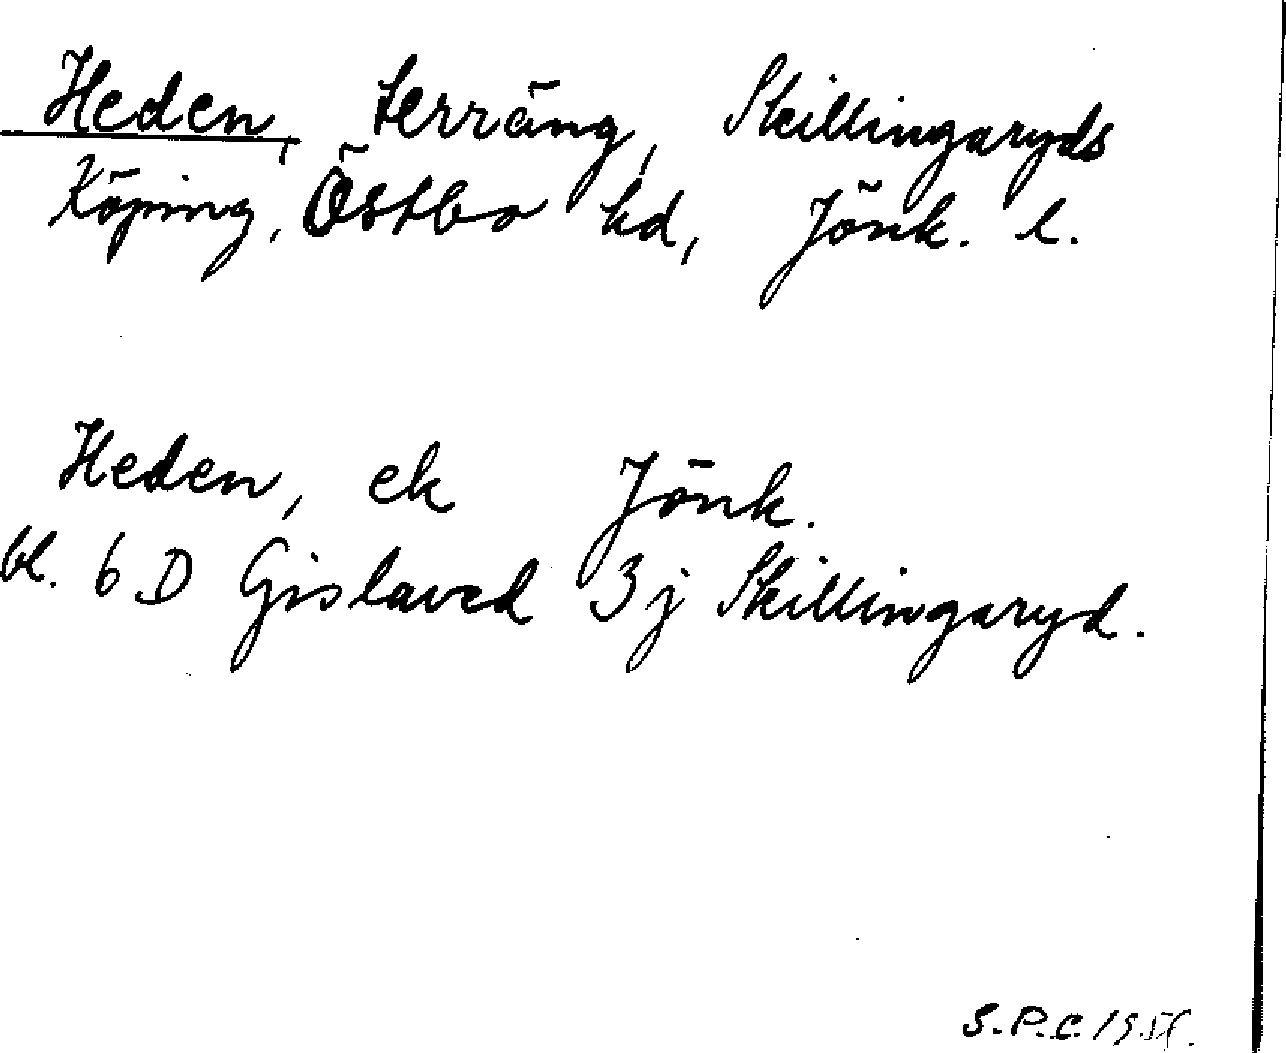 Heden, terräng, Skillingaryds
Köping, Östbo hd, Jönk. l.
Heden, ek Jönk.
bl. 6 D Gislaved 3 j Skillingaryd.
S.P.C.